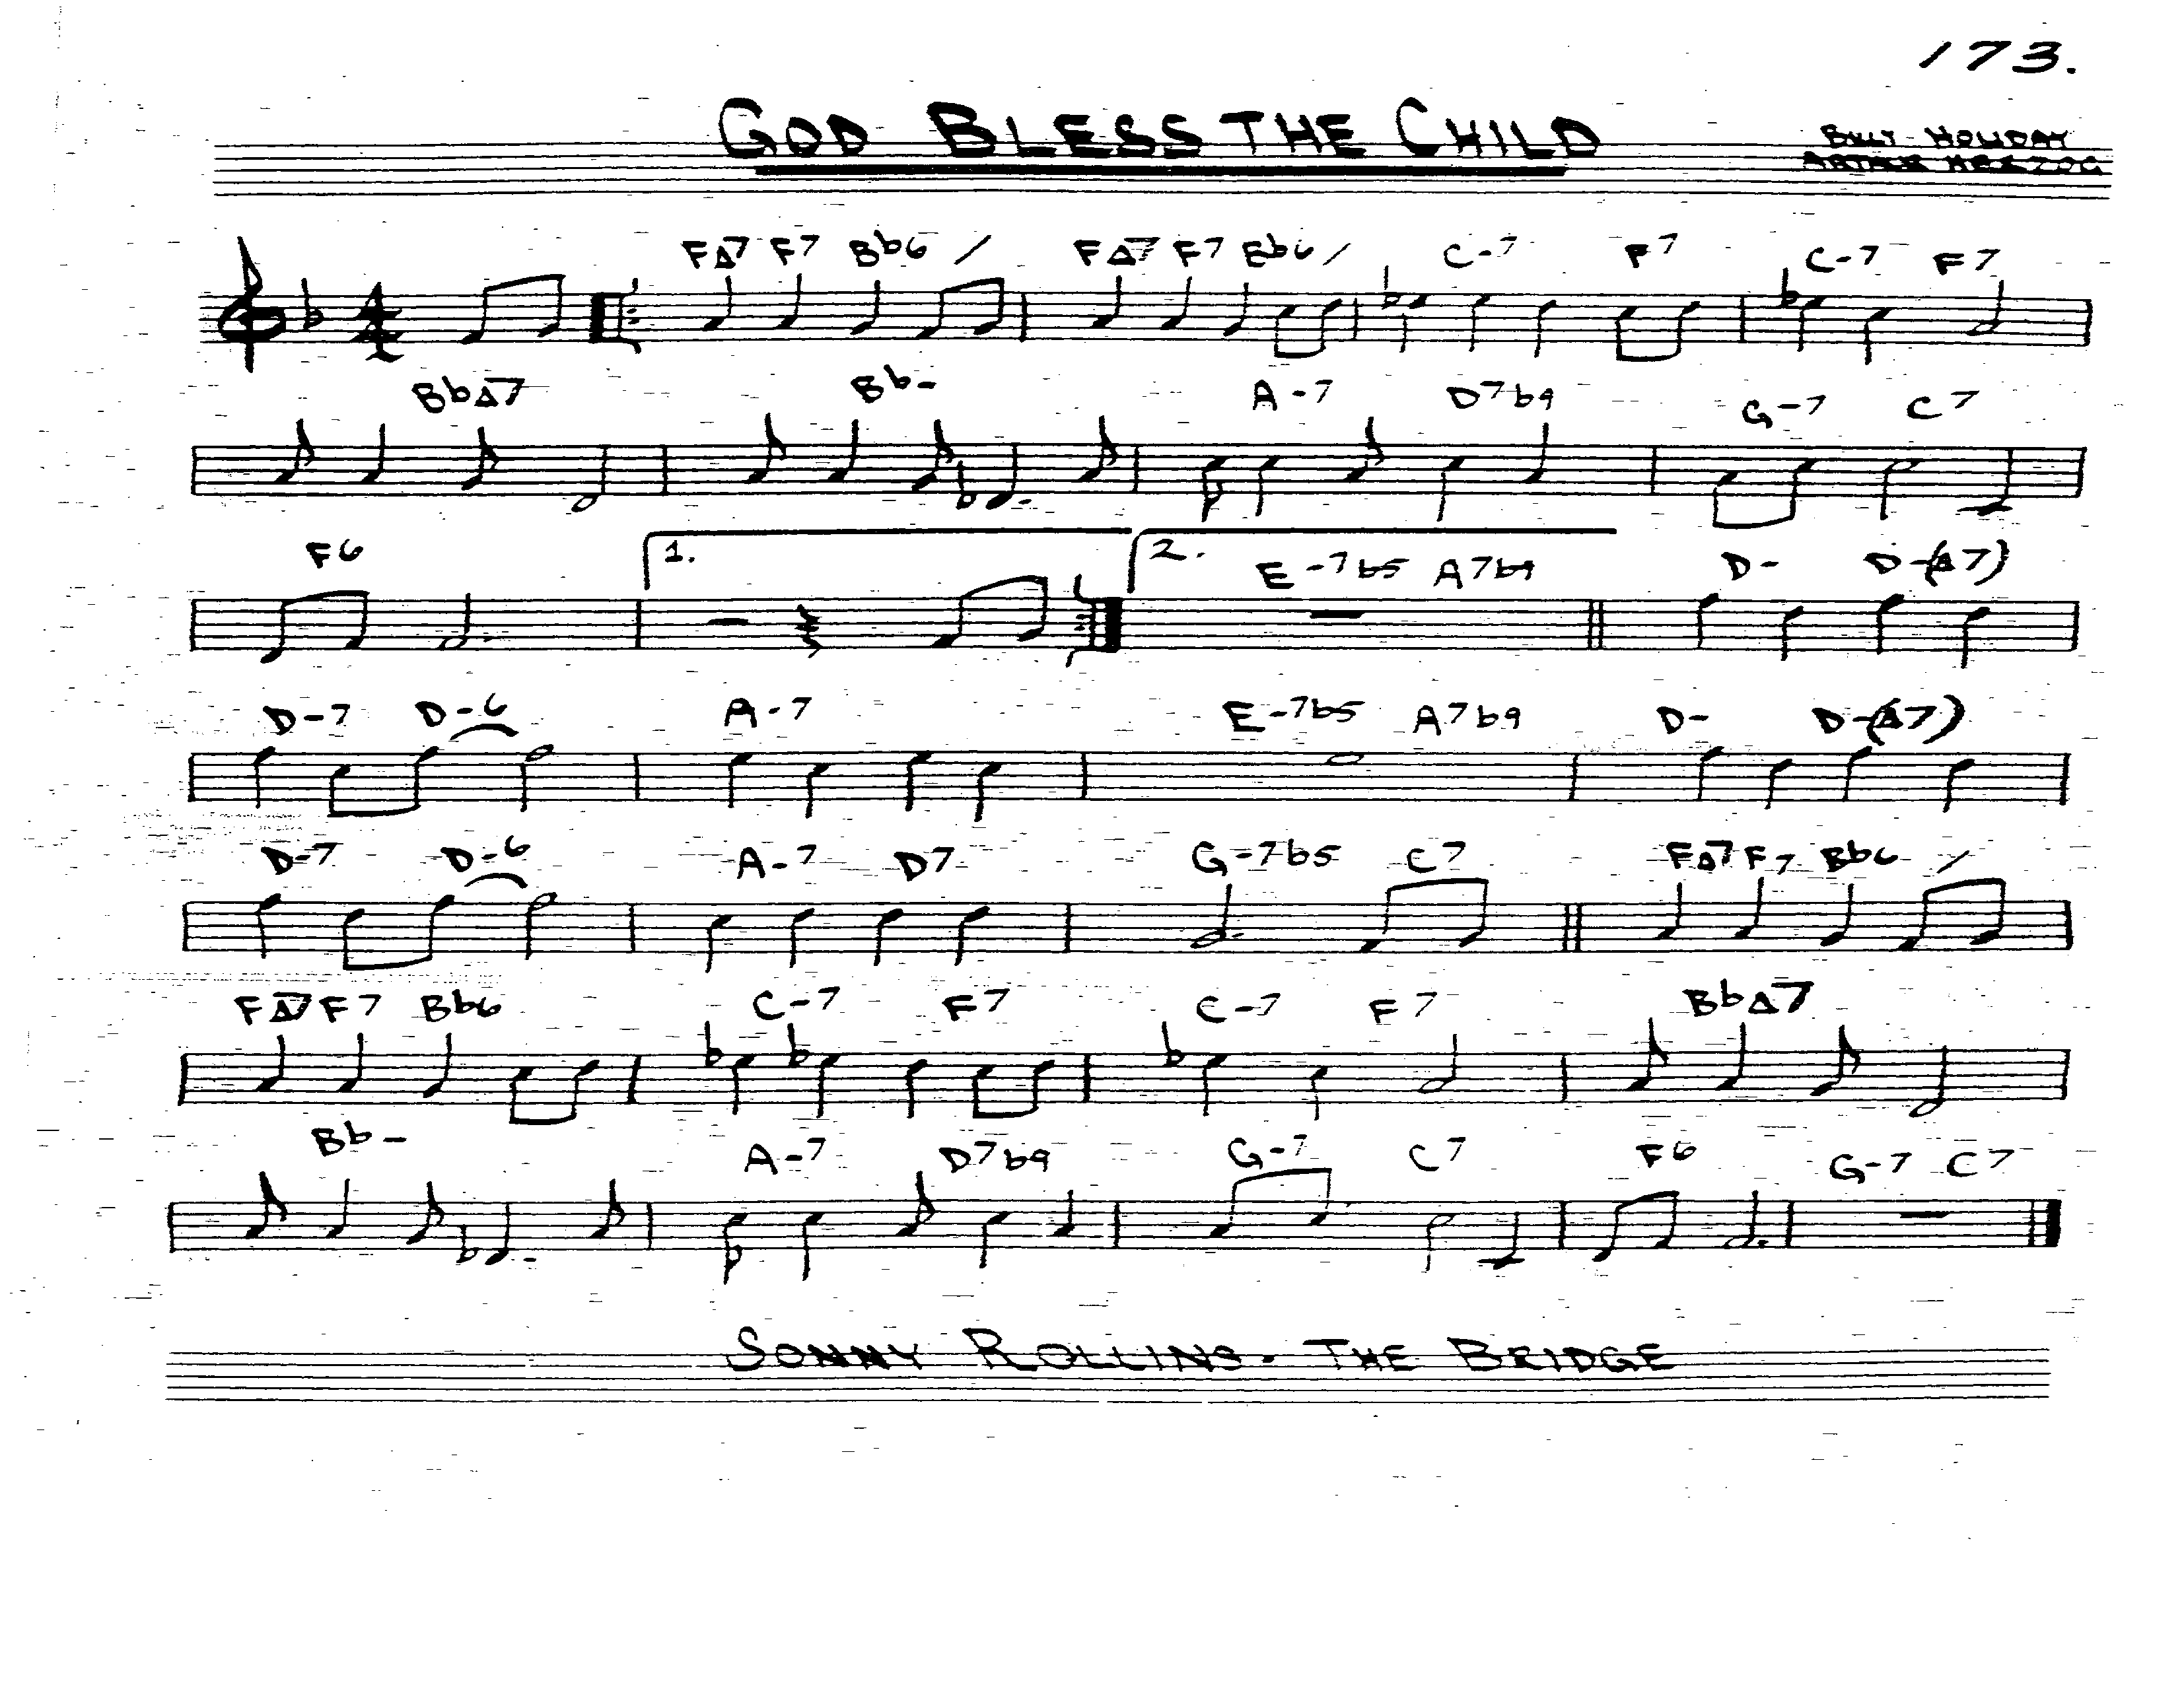 173.
GOD BLESS THE CHILD
BILLY HOLIDAY
ARTHUR HERZOG
FΔ7 F7 Bb6 / FΔ7 F7 Eb6 / C-7 F7 C-7 F7
4
4
BbΔ7 Bb- A-7 D7b9 G-7 C7
F6 1. 2. E-7b5 A7b9 D- D-(Δ7)
D-7 D-6 A-7 E-7b5 A7b9 D- D-(Δ7)
D-7 D-6 A-7 D7 G-7b5 C7 FΔ7 F7 Bb6 /
FΔ7 F7 Bb6 C-7 F7 C-7 F7 BbΔ7
Bb- A-7 D7b9 G-7 C7 F6 G-7 C7
SONNY ROLLINS - THE BRIDGE